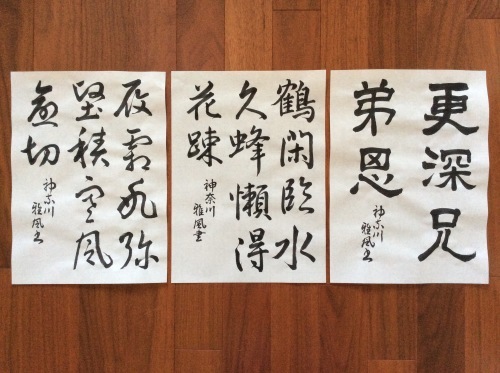 更深兄
弟恩
神奈川
雅風書
鶴閑臨水
久蜂懶得
花踈
神奈川
雅風書
霜氷弥
堅積風
愈切
神奈川
雅風書